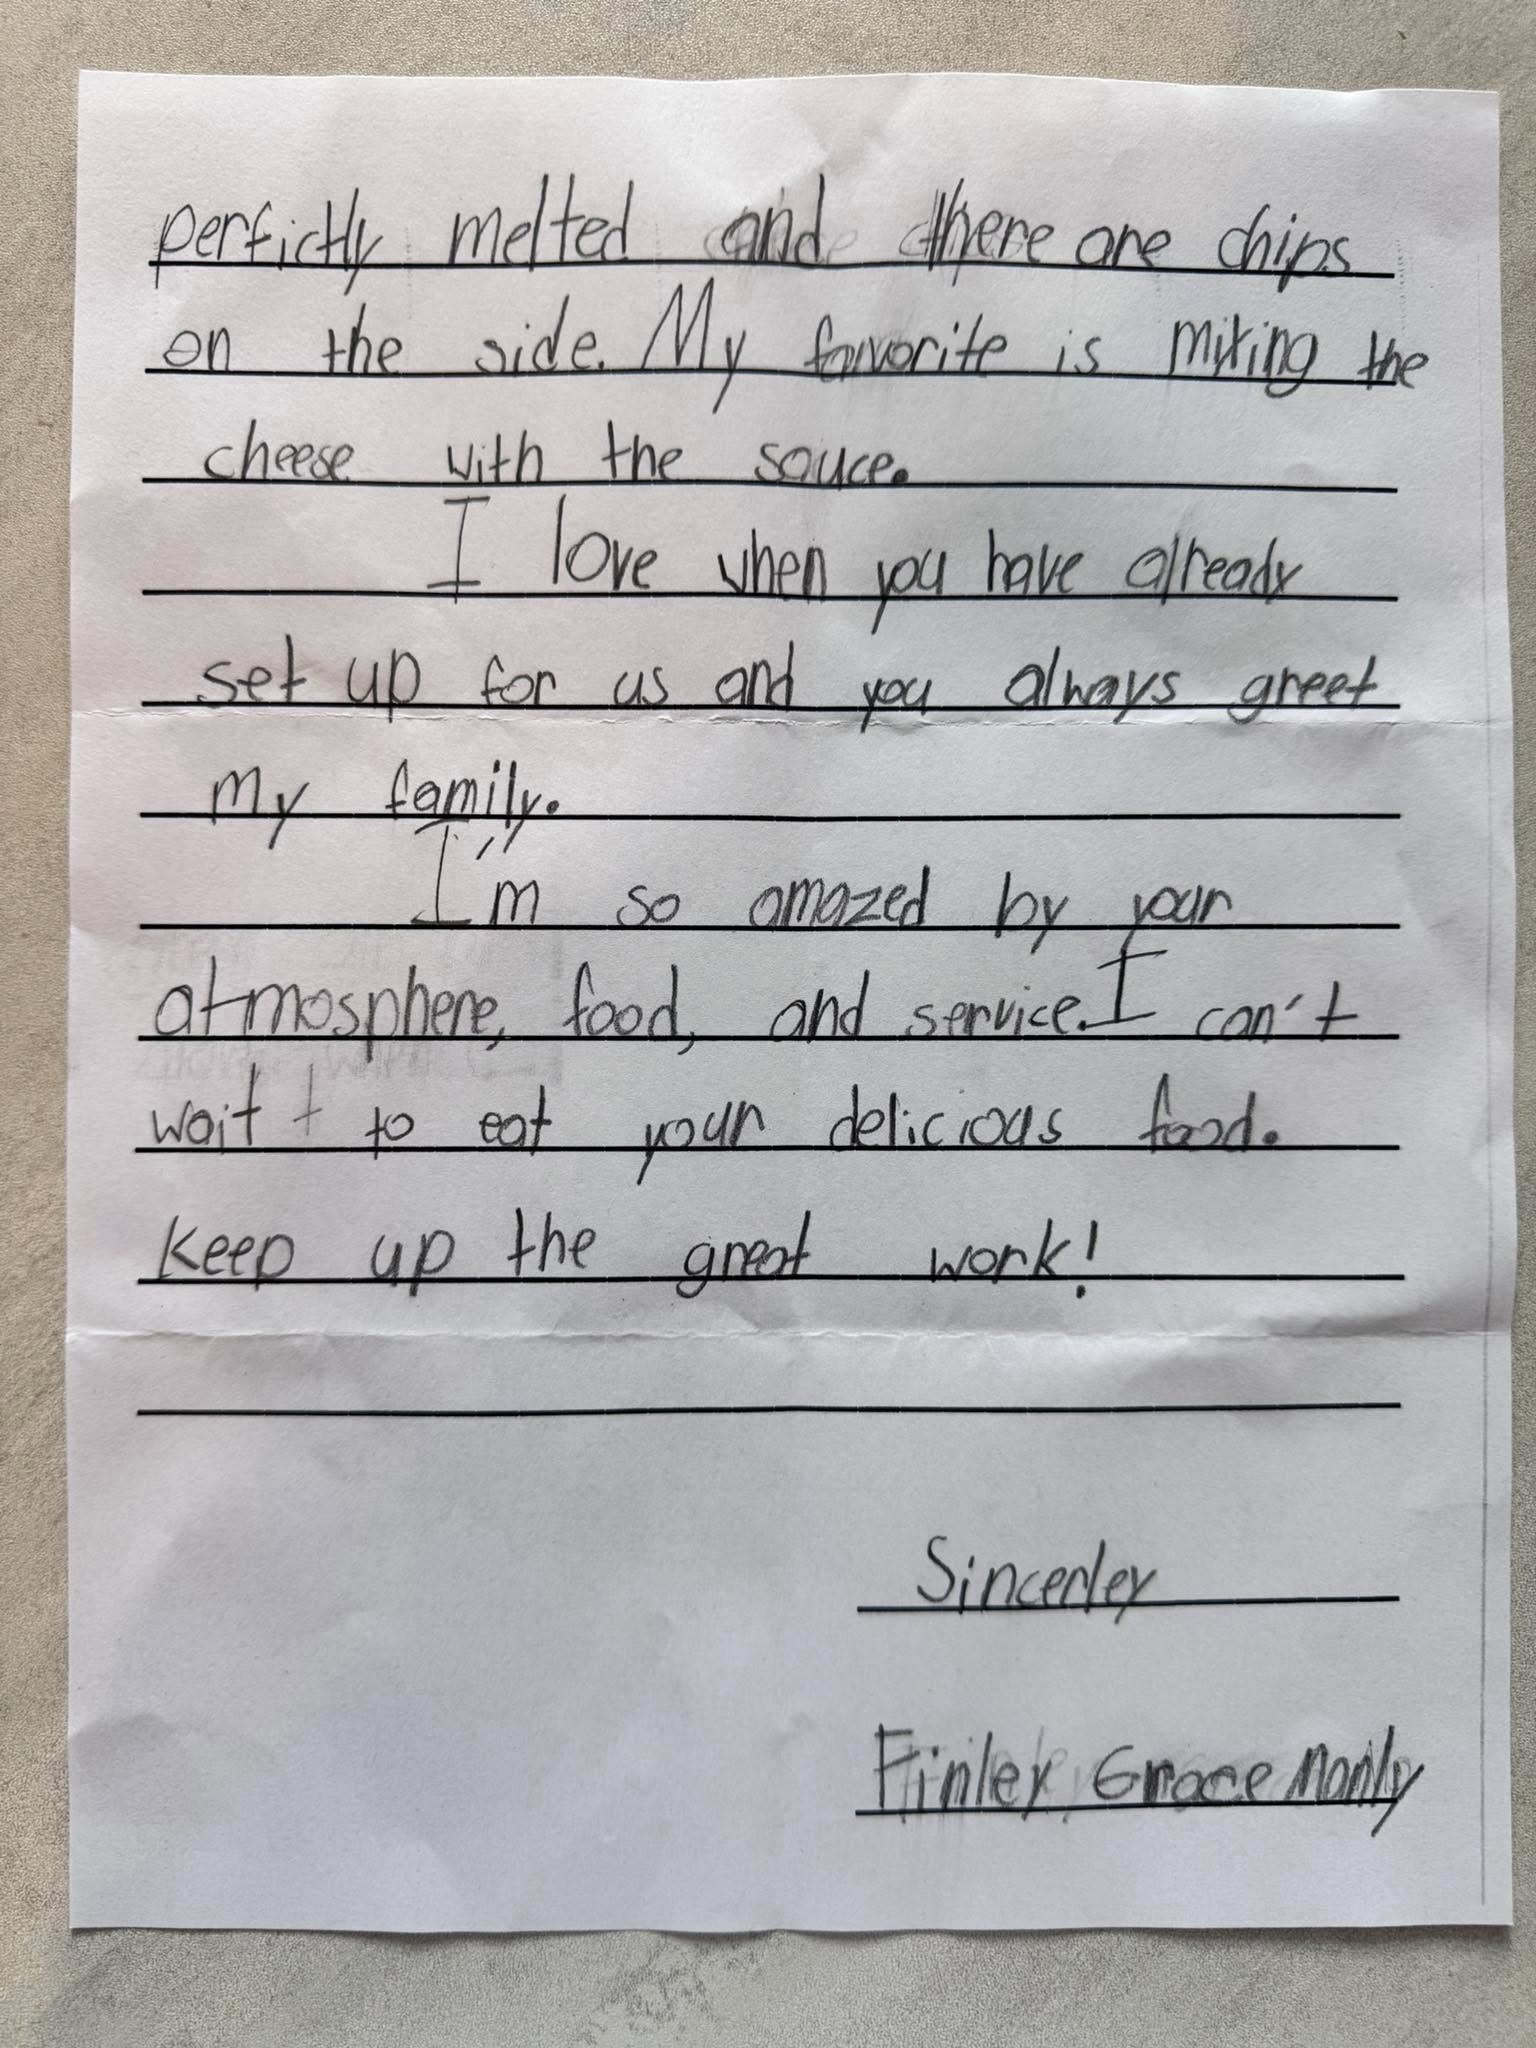 perfictly melted and there are chips
on the side. My favorite is mixing the
cheese with the sauce.
I love when you have already
set up for us and you always greet
my family.
I'm so amazed by your
atmosphere, food, and service. I can't
wait t to eat your delicious food.
Keep up the great work!
Sincerley
Finley Grace Manly